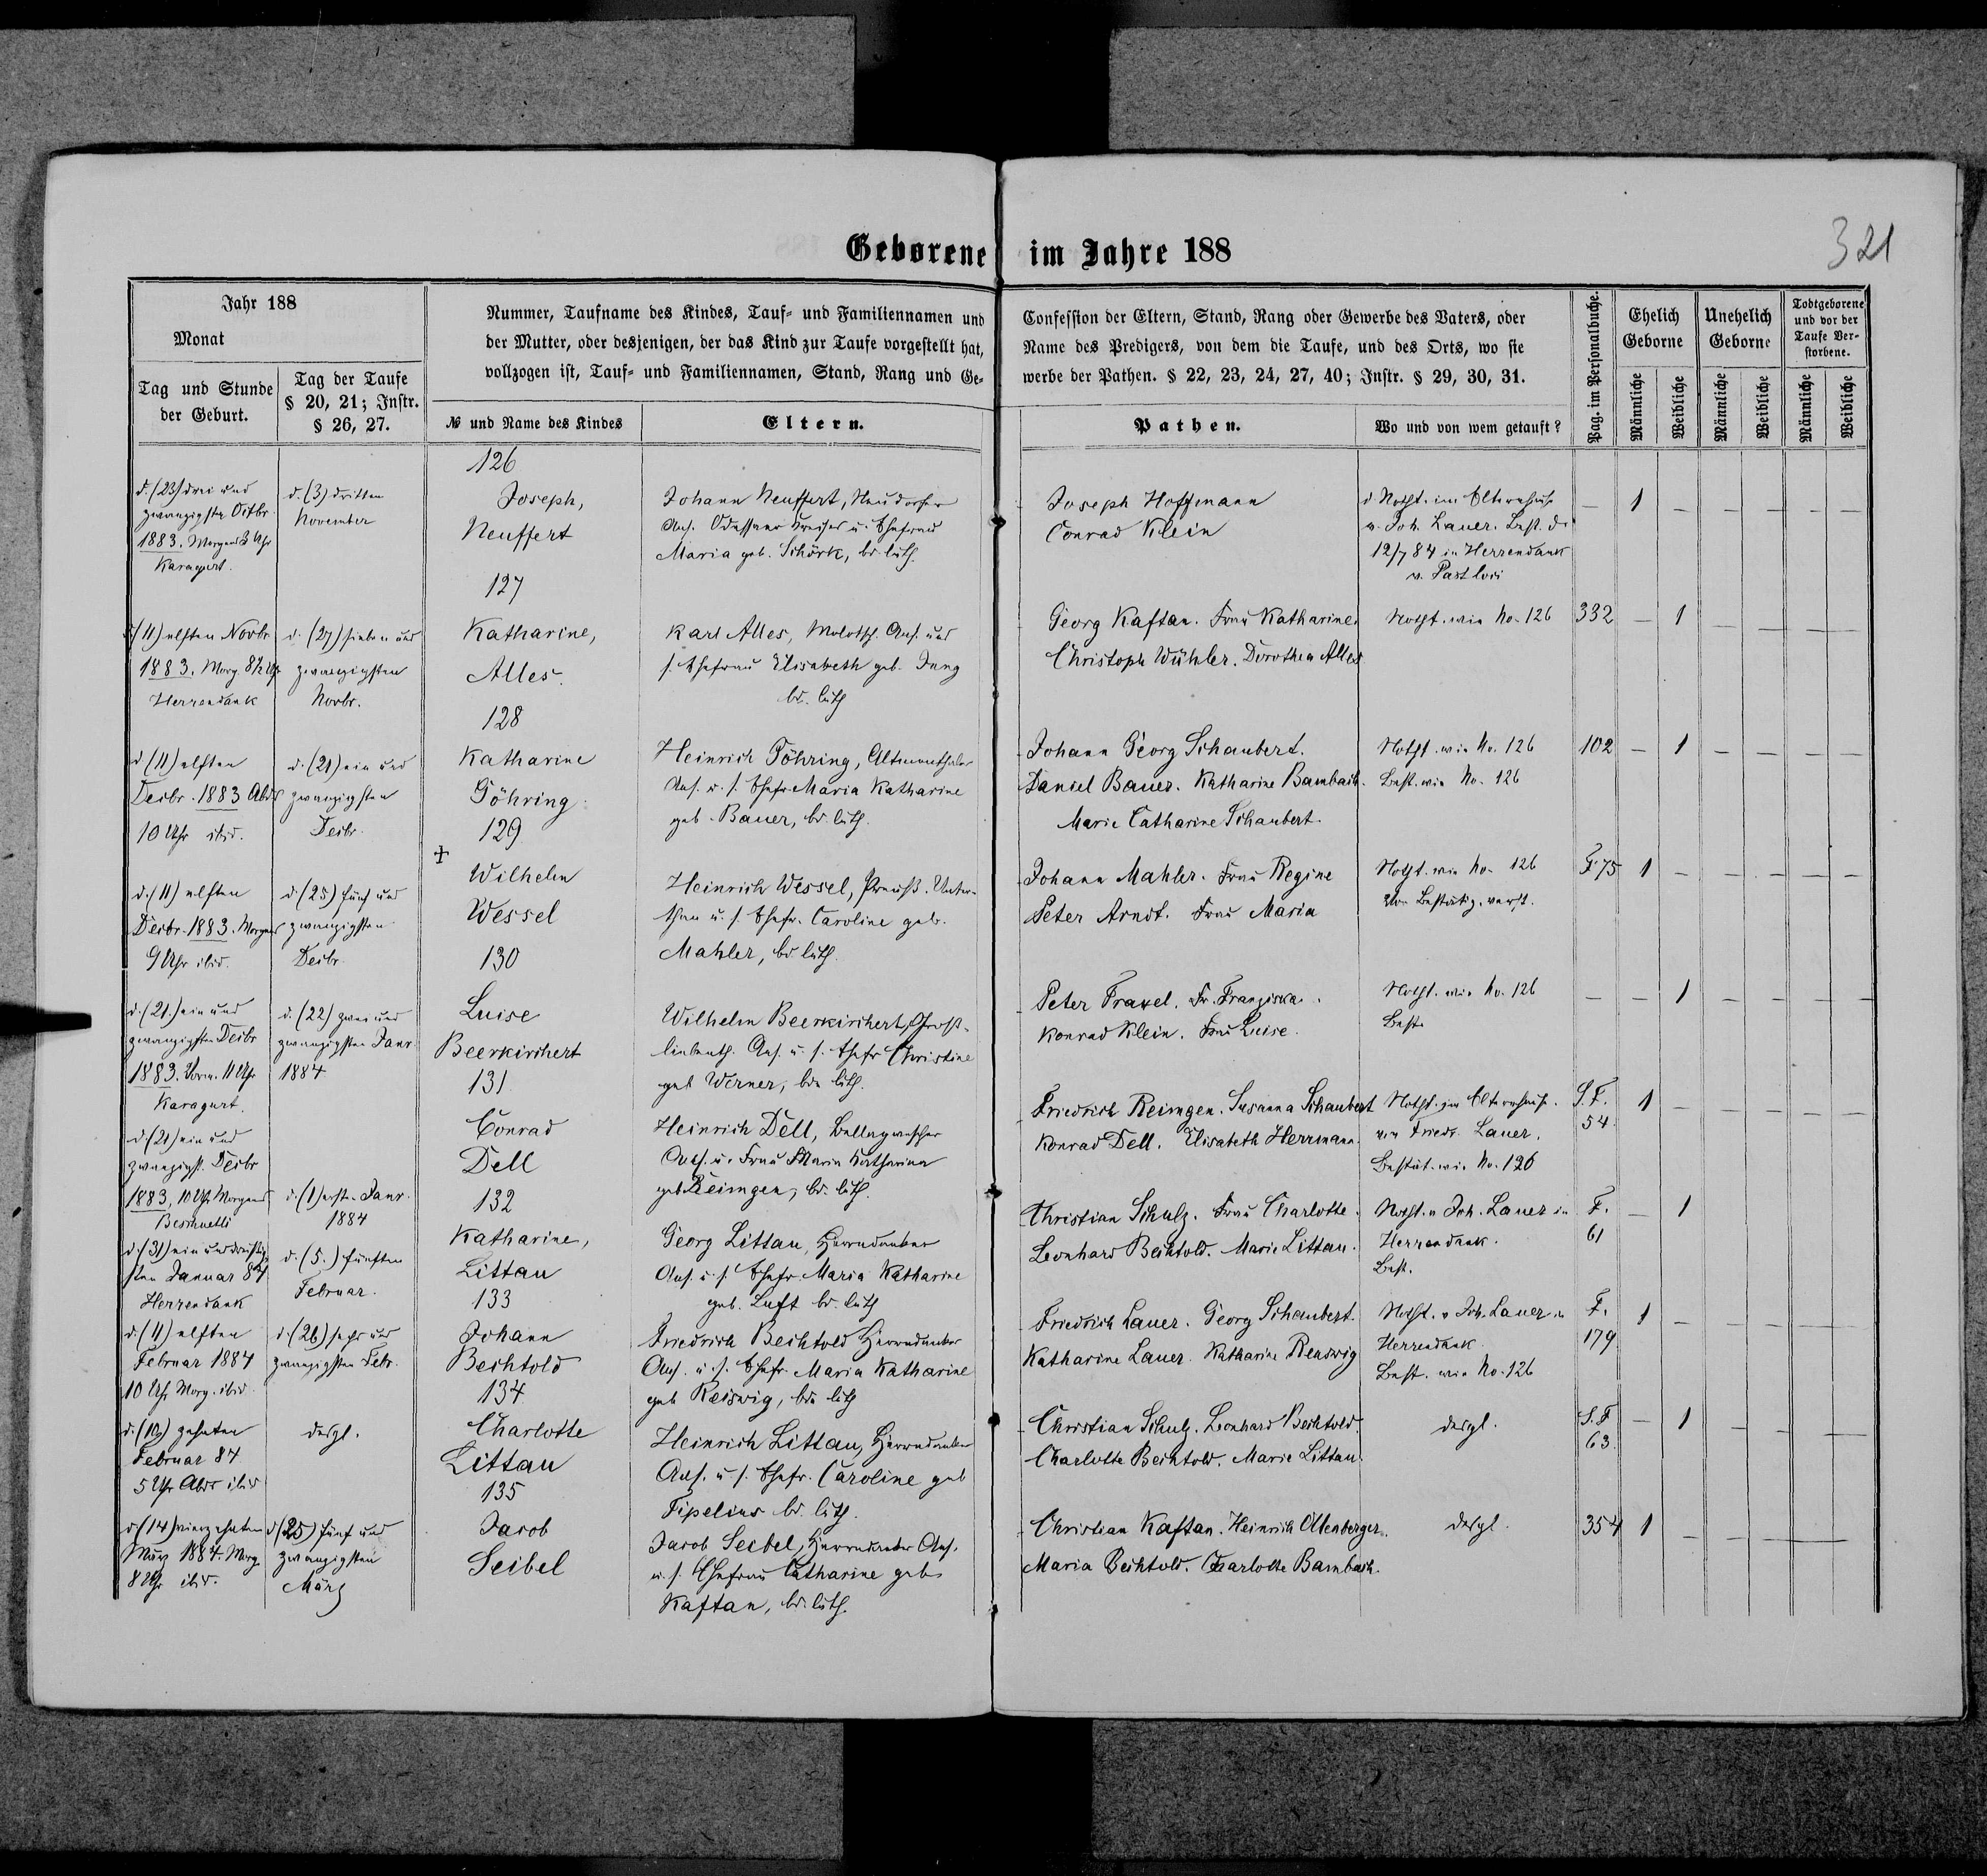 321
Geborene im Jahre 188
Jahr 188
Monat
Tag und Stunde
der Geburt.
Tag der Taufe
§ 20, 21; Instr.
§ 26, 27.
Nummer, Taufname des Kindes, Tauf- und Familiennamen und
der Mutter, oder desjenigen, der das Kind zur Taufe vorgestellt hat,
vollzogen ist, Tauf- und Familiennamen, Stand, Rang und Ge-
№ und Name des Kindes
Eltern.
Confession der Eltern, Stand, Rang oder Gewerbe des Vaters, oder
Name des Predigers, von dem die Taufe, und des Orts, wo sie
werbe der Pathen. § 22, 23, 24, 27, 40; Instr. § 29, 30, 31.
Pathen.
Wo und von wem getauft?
Pag. im Personalbuche.
Ehelich
Geborne
Unehelich
Geborne
Todtgeborene
und vor der
Taufe Ver-
storbene.
Männliche
Weibliche
Männliche
Weibliche
Männliche
Weibliche
d. (23) drei und
zwanzigste Octbr.
1883. Morgens Uhr
Karagurt.
d. (3) dritten
November
126
Joseph,
Neuffert
Johann Neuffert, Neudorfer
Ans. Odessaer Kreises u. Ehefrau
Maria geb. Schörk, bd. luth.
Joseph Hoffmann
Conrad Klein
d. Notht. im Elternhause
v. Joh. Lauer. Best. d.
12/7 84 in Herrendank
v. Past
— 1 — — — — —
d. (11) elften Novbr.
1883. Morg. 8½ Uhr
Herrendank
d. (27) sieben und
zwanzigsten
Novbr.
127
Katharine,
Alles.
Karl Alles, Molotsch. Ans. und
s. Ehefrau Elisabeth geb. Jung
bd. luth
Georg Kaftan. Frau Katharine.
Christoph Wühler. Dorothea Alles
Notht. wie No. 126
332 — 1 — — — —
d (11) elften
Decbr. 1883 Abds
10 Uhr ibid.
d. (21) ein und
zwanzigsten
Decbr.
128
Katharine
Göhring.
Heinrich Göhring, Altmonthaler
Ans. u. s. Ehefr. Maria Katharine
geb. Bauer, bd. luth.
Johann Georg Schaubert.
Daniel Bauer. Katharine Bambach.
Marie Catharine Schaubert.
Notht. wie No. 126
Best. wie No. 126
102 — 1 — — — —
d. (11) elften
Decbr. 1883. Morgens
9 Uhr ibid.
d. (25) fünf und
zwanzigsten
Decbr.
129
+
Wilhelm
Wessel
Heinrich Wessel, Preuß. Unter-
than u. s. Ehefr. Caroline geb.
Mahler, bd luth.
Johann Mahler. Frau Regine
Peter Arndt. Frau Maria
Notht. wie No. 126
Vor Bestätig. verst.
F. 75 1 — — — — —
d. (21.) ein und
zwanzigsten Decbr
1883. Vorm. 11 Uhr
Karagurt.
d. (22) zwei und
zwanzigsten Janr
1884
130
Luise
Beerkirchert
Wilhelm Beerkirchert, Groß-
liebenth. Ans. u. s. Ehefr Christine
geb Werner, bd. luth.
Peter Fraxel. Fr. Franziska.
Konrad Klein. Frau Luise.
Notht. wie No. 126
Best.
— — 1 — — — —
d (21) ein und
zwanzigst. Decbr
1883, 10 Uhr Morgens
d. (1) erst. Janr.
1884
131
Conrad
Dell
Heinrich Dell,
Ans. u. Frau Maria Katharina
geb. Reimgen, bd. luth.
Friedrich Reimgen. Susanna Schaubert
Konrad Dell. Elisabeth Herrmann.
Notht. im Elternhause.
von Friedr. Lauer.
Bestät. wie No. 126
S. F.
54 1 — — — — —
d. (31) ein und dreißig-
sten Januar 84
Herrendank
d. (5.) fünften
Februar.
132
Katharine,
Littau
Georg Littau, Herrendanker
Ans. u. s. Ehefr. Maria Katharine
geb. Luft bd. luth
Christian Schulz. Frau Charlotte.
Leonhard Bechtold. Marie Littau.
Notht. v. Joh. Lauer in
Herrendank.
Best.
F.
61 — 1
d. (11) elften
Februar 1884
10 Uhr Morg. ibid.
d. (26) sechs und
zwanzigsten Febr.
133
Johann
Bechtold
Friedrich Bechtold Herrendanker
Ans. u. s. Ehefr. Maria Katharine
geb Reiswig, bd. luth
Friedrich Lauer. Georg Schaubert.
Katharine Lauer. Katharine Renswig
Notht. v. Joh. Lauer in
Herrendank.
Best. wie No. 126
F.
179 1 — — — — —
d. (10) zehnten
Februar 84
5 Uhr Abds ibid
desgl.
134
Charlotte
Littau
Heinrich Littau, Herrendanker
Ans. u. s. Ehefr. Caroline geb
Tipelius bd. luth.
Christian Schulz. Leonhard Bechtold.
Charlotte Bechtold. Marie Littau.
desgl.
S. F
63. — 1 — — —
d (14) vierzehnten
März 1884. Morg.
8 Uhr ibid.
d (25) fünf und
zwanzigsten
März
135
Jacob
Seibel
Jacob Seibel, Herrendanker Ans.
u. s. Ehefrau Catharine geb.
Kaftan, bd. luth.
Christian Kaftan. Heinrich Ollenberger.
Maria Bechtold. Charlotte Bambach.
desgl.
354 1 — — —